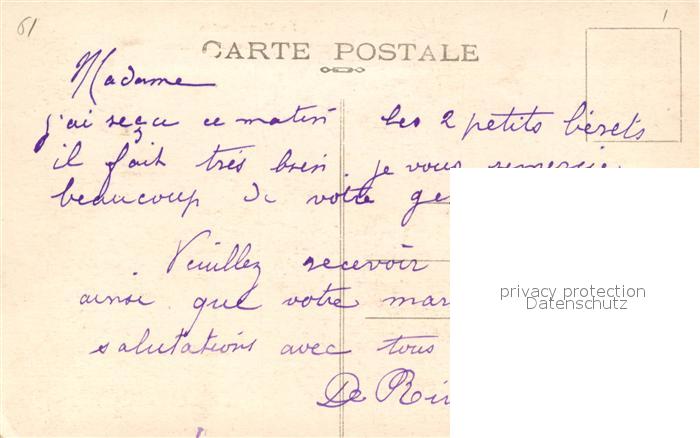 61
CARTE POSTALE
Madame
j'ai reçu ce matin les 2 petits bérets
il fait très bien. je vous remercie
beaucoup de votre
Veuillez recevoir
ainsi que votre
salutations avec tous
De
privacy protection
Datenschutz